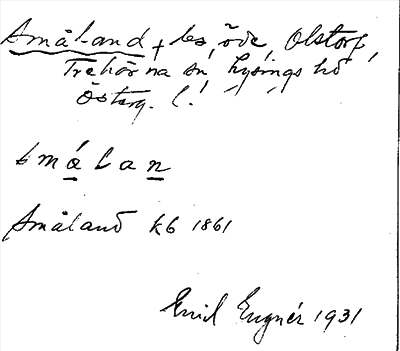 Småland, + ls, öde, Olstorp,
Trehörna sn, Lysings hd
Österg. l.
smålan
Småland kb 1861
Enid Eugnér 1931